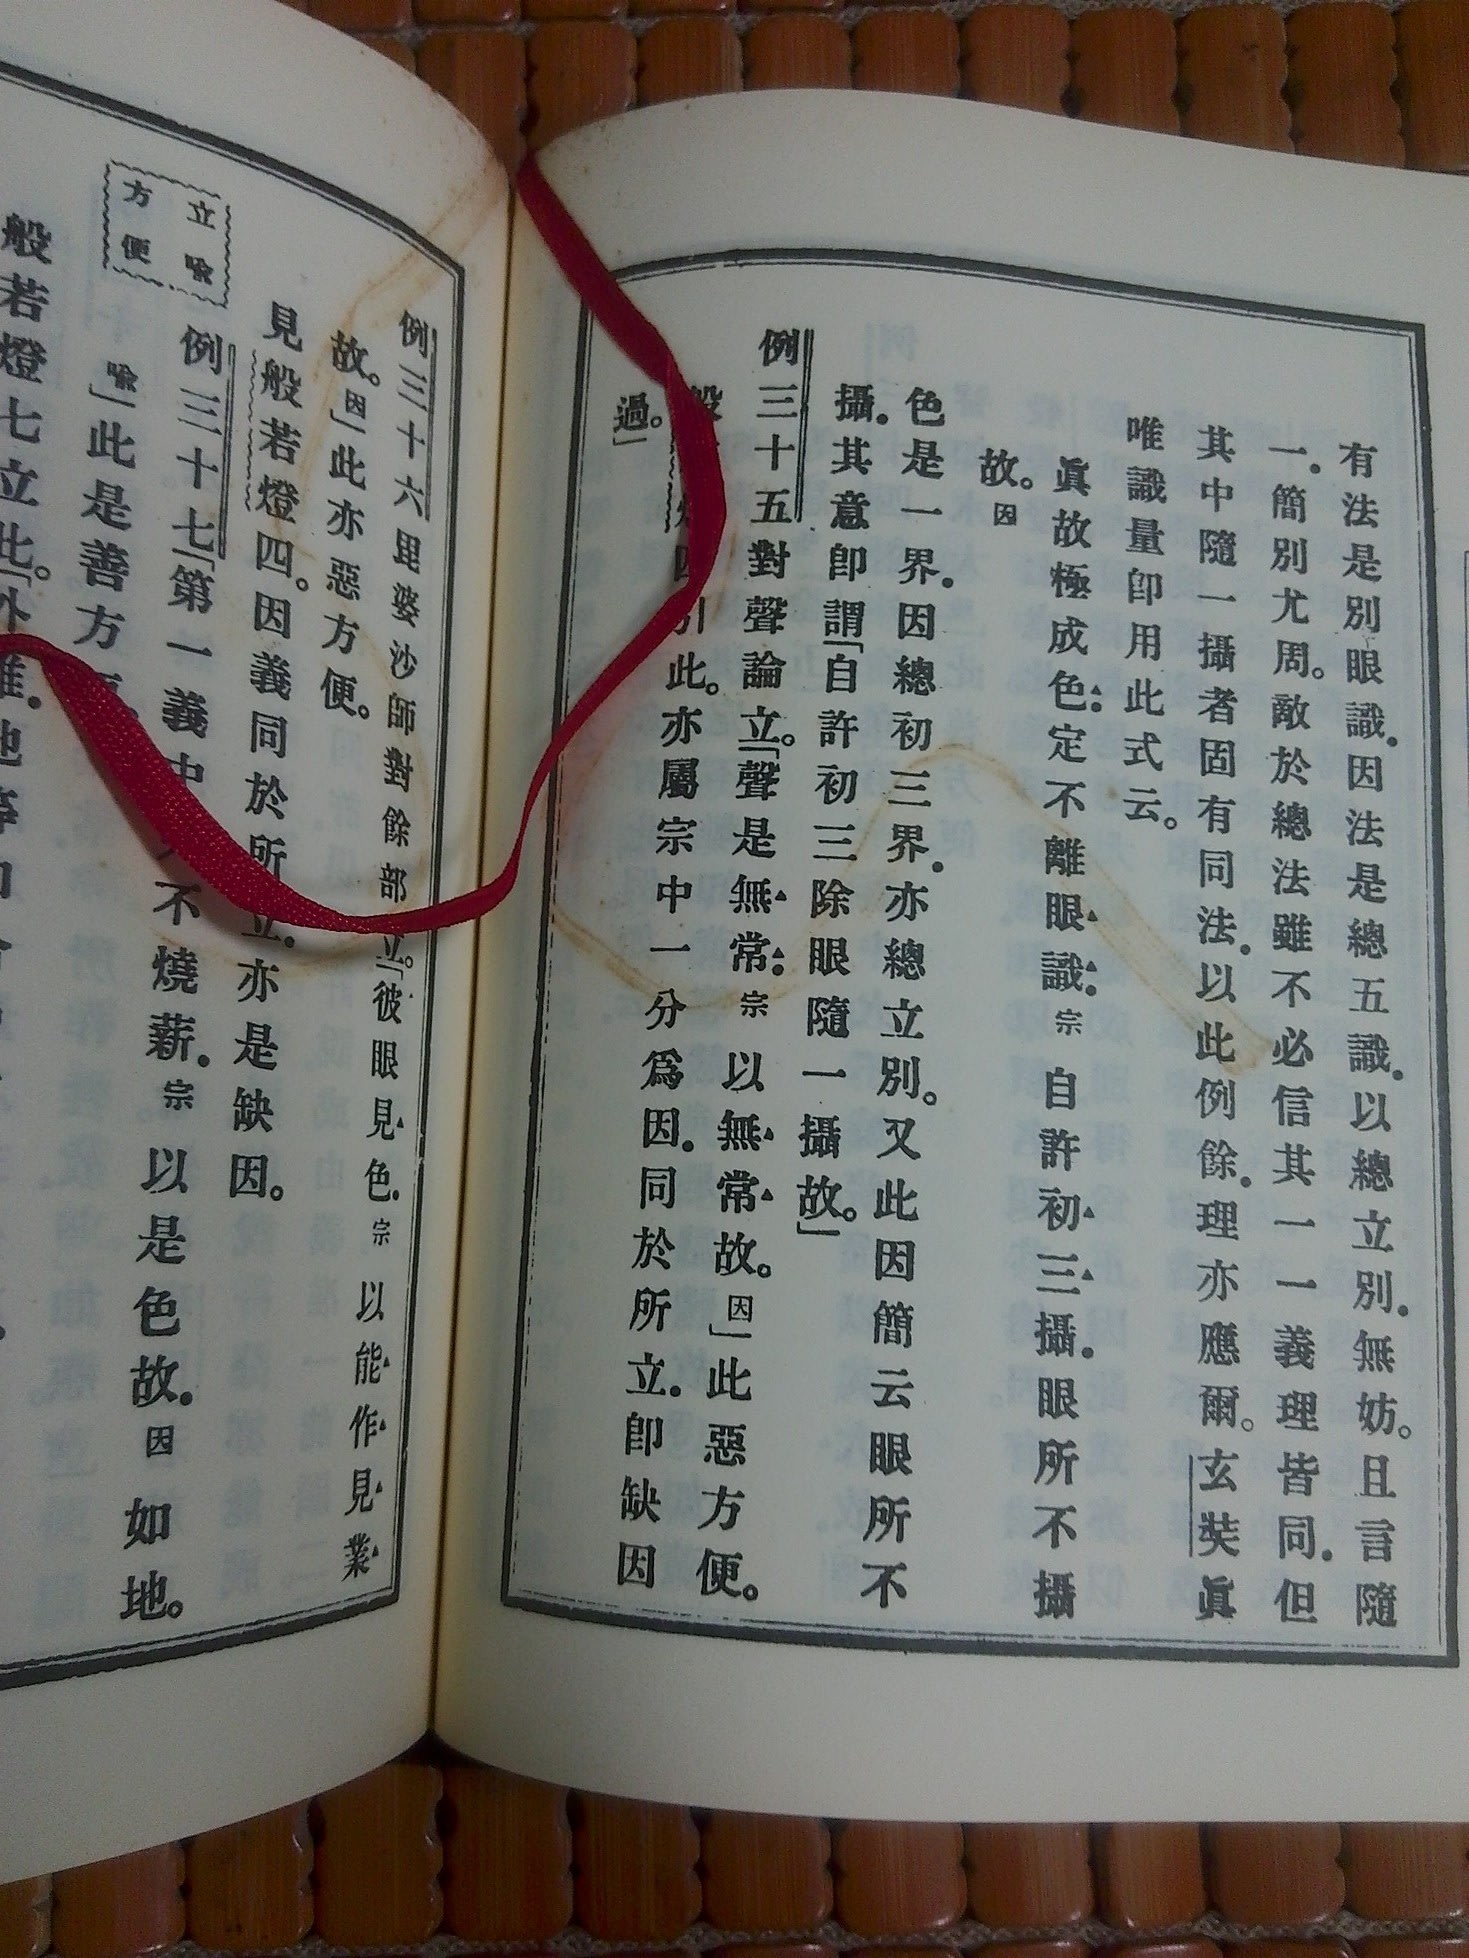 有法是別眼識.因法是總五識.以總立別.無妨。且言隨
一.簡別尤周。敵於總法雖不必信其一一義理皆同.但
其中隨一攝者固有同法.以此例餘.理亦應爾。玄奘眞
唯識量卽用此式云。
眞故極成色.定不離眼識.宗 自許初三攝.眼所不攝
故。因
色是一界.因總初三界.亦總立別。又此因簡云眼所不
攝.其意卽謂「自許初三除眼隨一攝故。」
例三十五對聲論立。「聲是無常.宗 以無常故。因」此惡方便。
四引此。亦屬宗中一分爲因.同於所立.卽缺因
過。」
例三十六毘婆沙師對餘部立。「彼眼見色.宗 以能作見業
故。因」此亦惡方便。
見般若燈四。因義同於所立.亦是缺因。
例三十七「第一義中 不燒薪.宗 以是色故.因 如地。
喩」此是善方
立喩
方便
般若燈七立此。「外